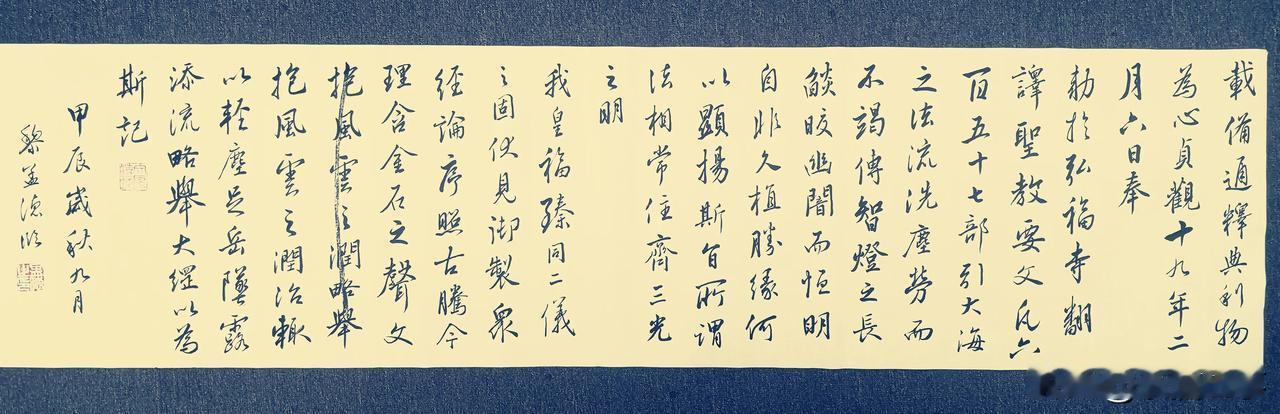 載備通釋典利物
為心貞觀十九年二
月六日奉
勅於弘福寺翻
譯聖教要文凡六
百五十七部引大海
之法流洗塵勞而
不竭傳智燈之長
燄皎幽闇而恒明
自非久植勝緣何
以顯揚斯旨所謂
法相常住齊三光
之明
我皇福臻同二儀
之固伏見御製眾
經論序照古騰今
理含金石之聲文
抱風雲之潤略舉
抱風雲之潤治輒
以輕塵足岳墜露
添流略舉大綱以為
斯記
甲辰歲秋九月
黎孟德臨